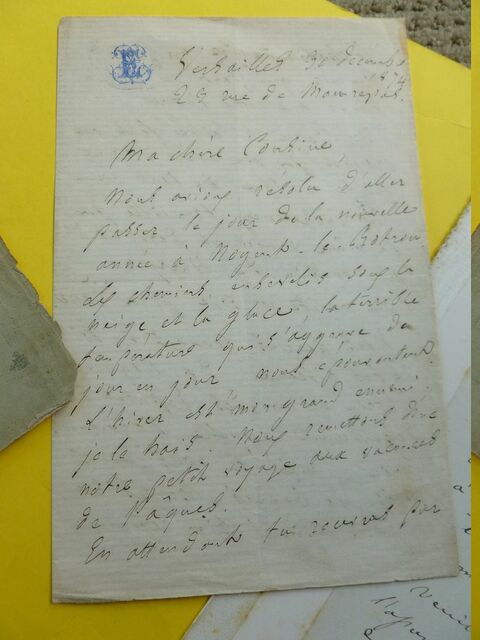 Versailles 30 décembre
1874
23 rue de Maurepas.
Ma chère Cousine
Nous avions résolu d'aller
passer le jour de la nouvelle
année à Nogent-le-Rotrou.
Les chemins ensevelis sous la
neige et la glace, la terrible
température qui s'aggrave de
jour en jour nous épouvantent
L'hiver est mon grand ennemi,
je le hais. Nous remettons donc
notre petit voyage aux vacances
de Pâques.
En attendant tu recevras par